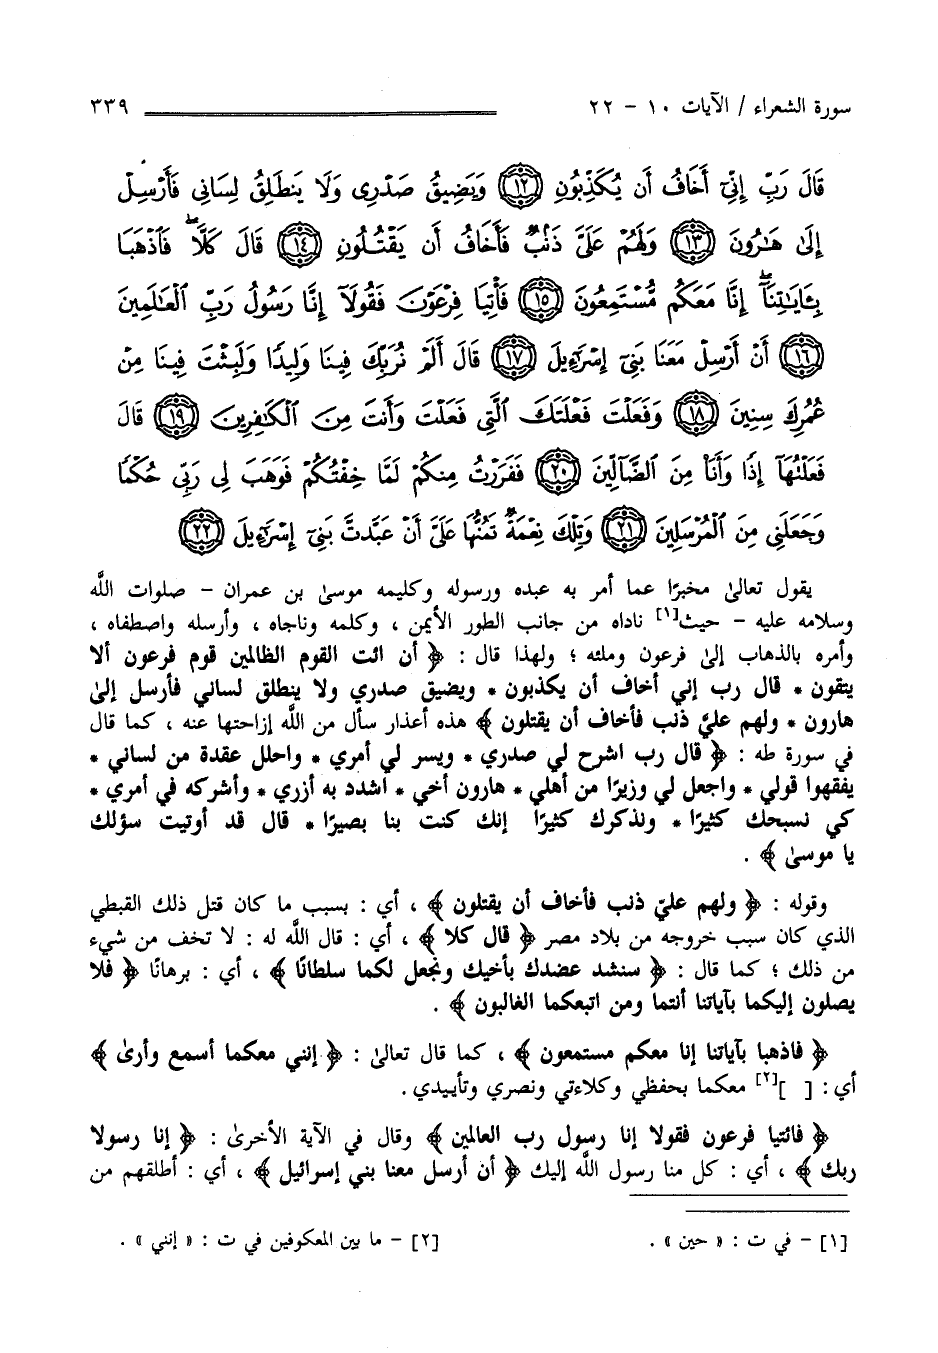 سورة الشعراء / الآيات ١٠ - ٢٢ ٣٣٩
قَالَ رَبِّ إِنِّىٓ أَخَافُ أَن يُكَذِّبُونِ ١٢ وَيَضِيقُ صَدْرِى وَلَا يَنطَلِقُ لِسَانِى فَأَرْسِلْ
إِلَىٰ هَٰرُونَ ١٣ وَلَهُمْ عَلَىَّ ذَنۢبٌ فَأَخَافُ أَن يَقْتُلُونِ ١٤ قَالَ كَلَّا ۖ فَٱذْهَبَا
بِـَٔايَٰتِنَآ ۖ إِنَّا مَعَكُم مُّسْتَمِعُونَ ١٥ فَأْتِيَا فِرْعَوْنَ فَقُولَآ إِنَّا رَسُولُ رَبِّ ٱلْعَٰلَمِينَ
١٦ أَنْ أَرْسِلْ مَعَنَا بَنِىٓ إِسْرَٰٓءِيلَ ١٧ قَالَ أَلَمْ نُرَبِّكَ فِينَا وَلِيدًا وَلَبِثْتَ فِينَا مِنْ
عُمُرِكَ سِنِينَ ١٨ وَفَعَلْتَ فَعْلَتَكَ ٱلَّتِى فَعَلْتَ وَأَنتَ مِنَ ٱلْكَٰفِرِينَ ١٩ قَالَ
فَعَلْتُهَآ إِذًا وَأَنَا۠ مِنَ ٱلضَّآلِّينَ ٢٠ فَفَرَرْتُ مِنكُمْ لَمَّا خِفْتُكُمْ فَوَهَبَ لِى رَبِّى حُكْمًا
وَجَعَلَنِى مِنَ ٱلْمُرْسَلِينَ ٢١ وَتِلْكَ نِعْمَةٌ تَمُنُّهَا عَلَىَّ أَنْ عَبَّدتَّ بَنِىٓ إِسْرَٰٓءِيلَ ٢٢
يقول تعالىٰ مخبرًا عما أمر به عبده ورسوله وكليمه موسىٰ بن عمران - صلوات اللَّه
وسلامه عليه - حيث[١] ناداه من جانب الطور الأيمن ، وكلمه وناجاه ، وأرسله واصطفاه ،
وأمره بالذهاب إلىٰ فرعون وملئه ؛ ولهذا قال : ﴿ أن ائت القوم الظالمين قوم فرعون ألا
يتقون * قال رب إني أخاف أن يكذبون * ويضيق صدري ولا ينطلق لساني فأرسل إلىٰ
هارون * ولهم عليّ ذنب فأخاف أن يقتلون ﴾ هذه أعذار سأل من اللَّه إزاحتها عنه ، كما قال
في سورة طه : ﴿ قال رب اشرح لي صدري * ويسر لي أمري * واحلل عقدة من لساني *
يفقهوا قولي * واجعل لي وزيرًا من أهلي * هارون أخي * اشدد به أزري * وأشركه في أمري *
كي نسبحك كثيرًا * ونذكرك كثيرًا إنك كنت بنا بصيرًا * قال قد أوتيت سؤلك
يا موسىٰ ﴾ .
وقوله : ﴿ ولهم عليّ ذنب فأخاف أن يقتلون ﴾ ، أي : بسبب ما كان قتل ذلك القبطي
الذي كان سبب خروجه من بلاد مصر ﴿ قال كلا ﴾ ، أي : قال اللَّه له : لا تخف من شيء
من ذلك ؛ كما قال : ﴿ سنشد عضدك بأخيك ونجعل لكما سلطانًا ﴾ ، أي : برهانًا ﴿ فلا
يصلون إليكما بآياتنا أنتما ومن اتبعكما الغالبون ﴾ .
﴿ فاذهبا بآياتنا إنا معكم مستمعون ﴾ ، كما قال تعالىٰ : ﴿ إنني معكما أسمع وأرىٰ ﴾
أي : [ ][٢] معكما بحفظي وكلاءتي ونصري وتأييدي .
﴿ فائتيا فرعون فقولا إنا رسول رب العالمين ﴾ وقال في الآية الأخرىٰ : ﴿ إنا رسولا
ربك ﴾ ، أي : كل منا رسول اللَّه إليك ﴿ أن أرسل معنا بني إسرائيل ﴾ ، أي : أطلقهم من
[١] - في ت : « حين » . [٢] - ما بين المعكوفين في ت : « إنني » .